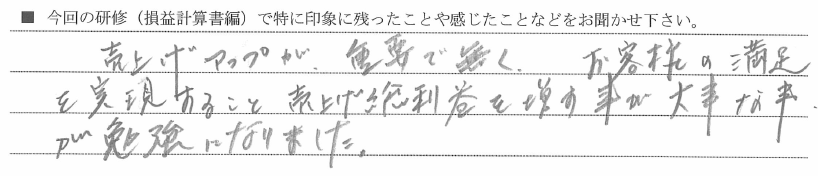 ■ 今回の研修（損益計算書編）で特に印象に残ったことや感じたことなどをお聞かせ下さい。
売上げアップが、重要で無く、お客様の満足
を実現すること 売上げ総利益を増す事が大事な事
が勉強になりました。